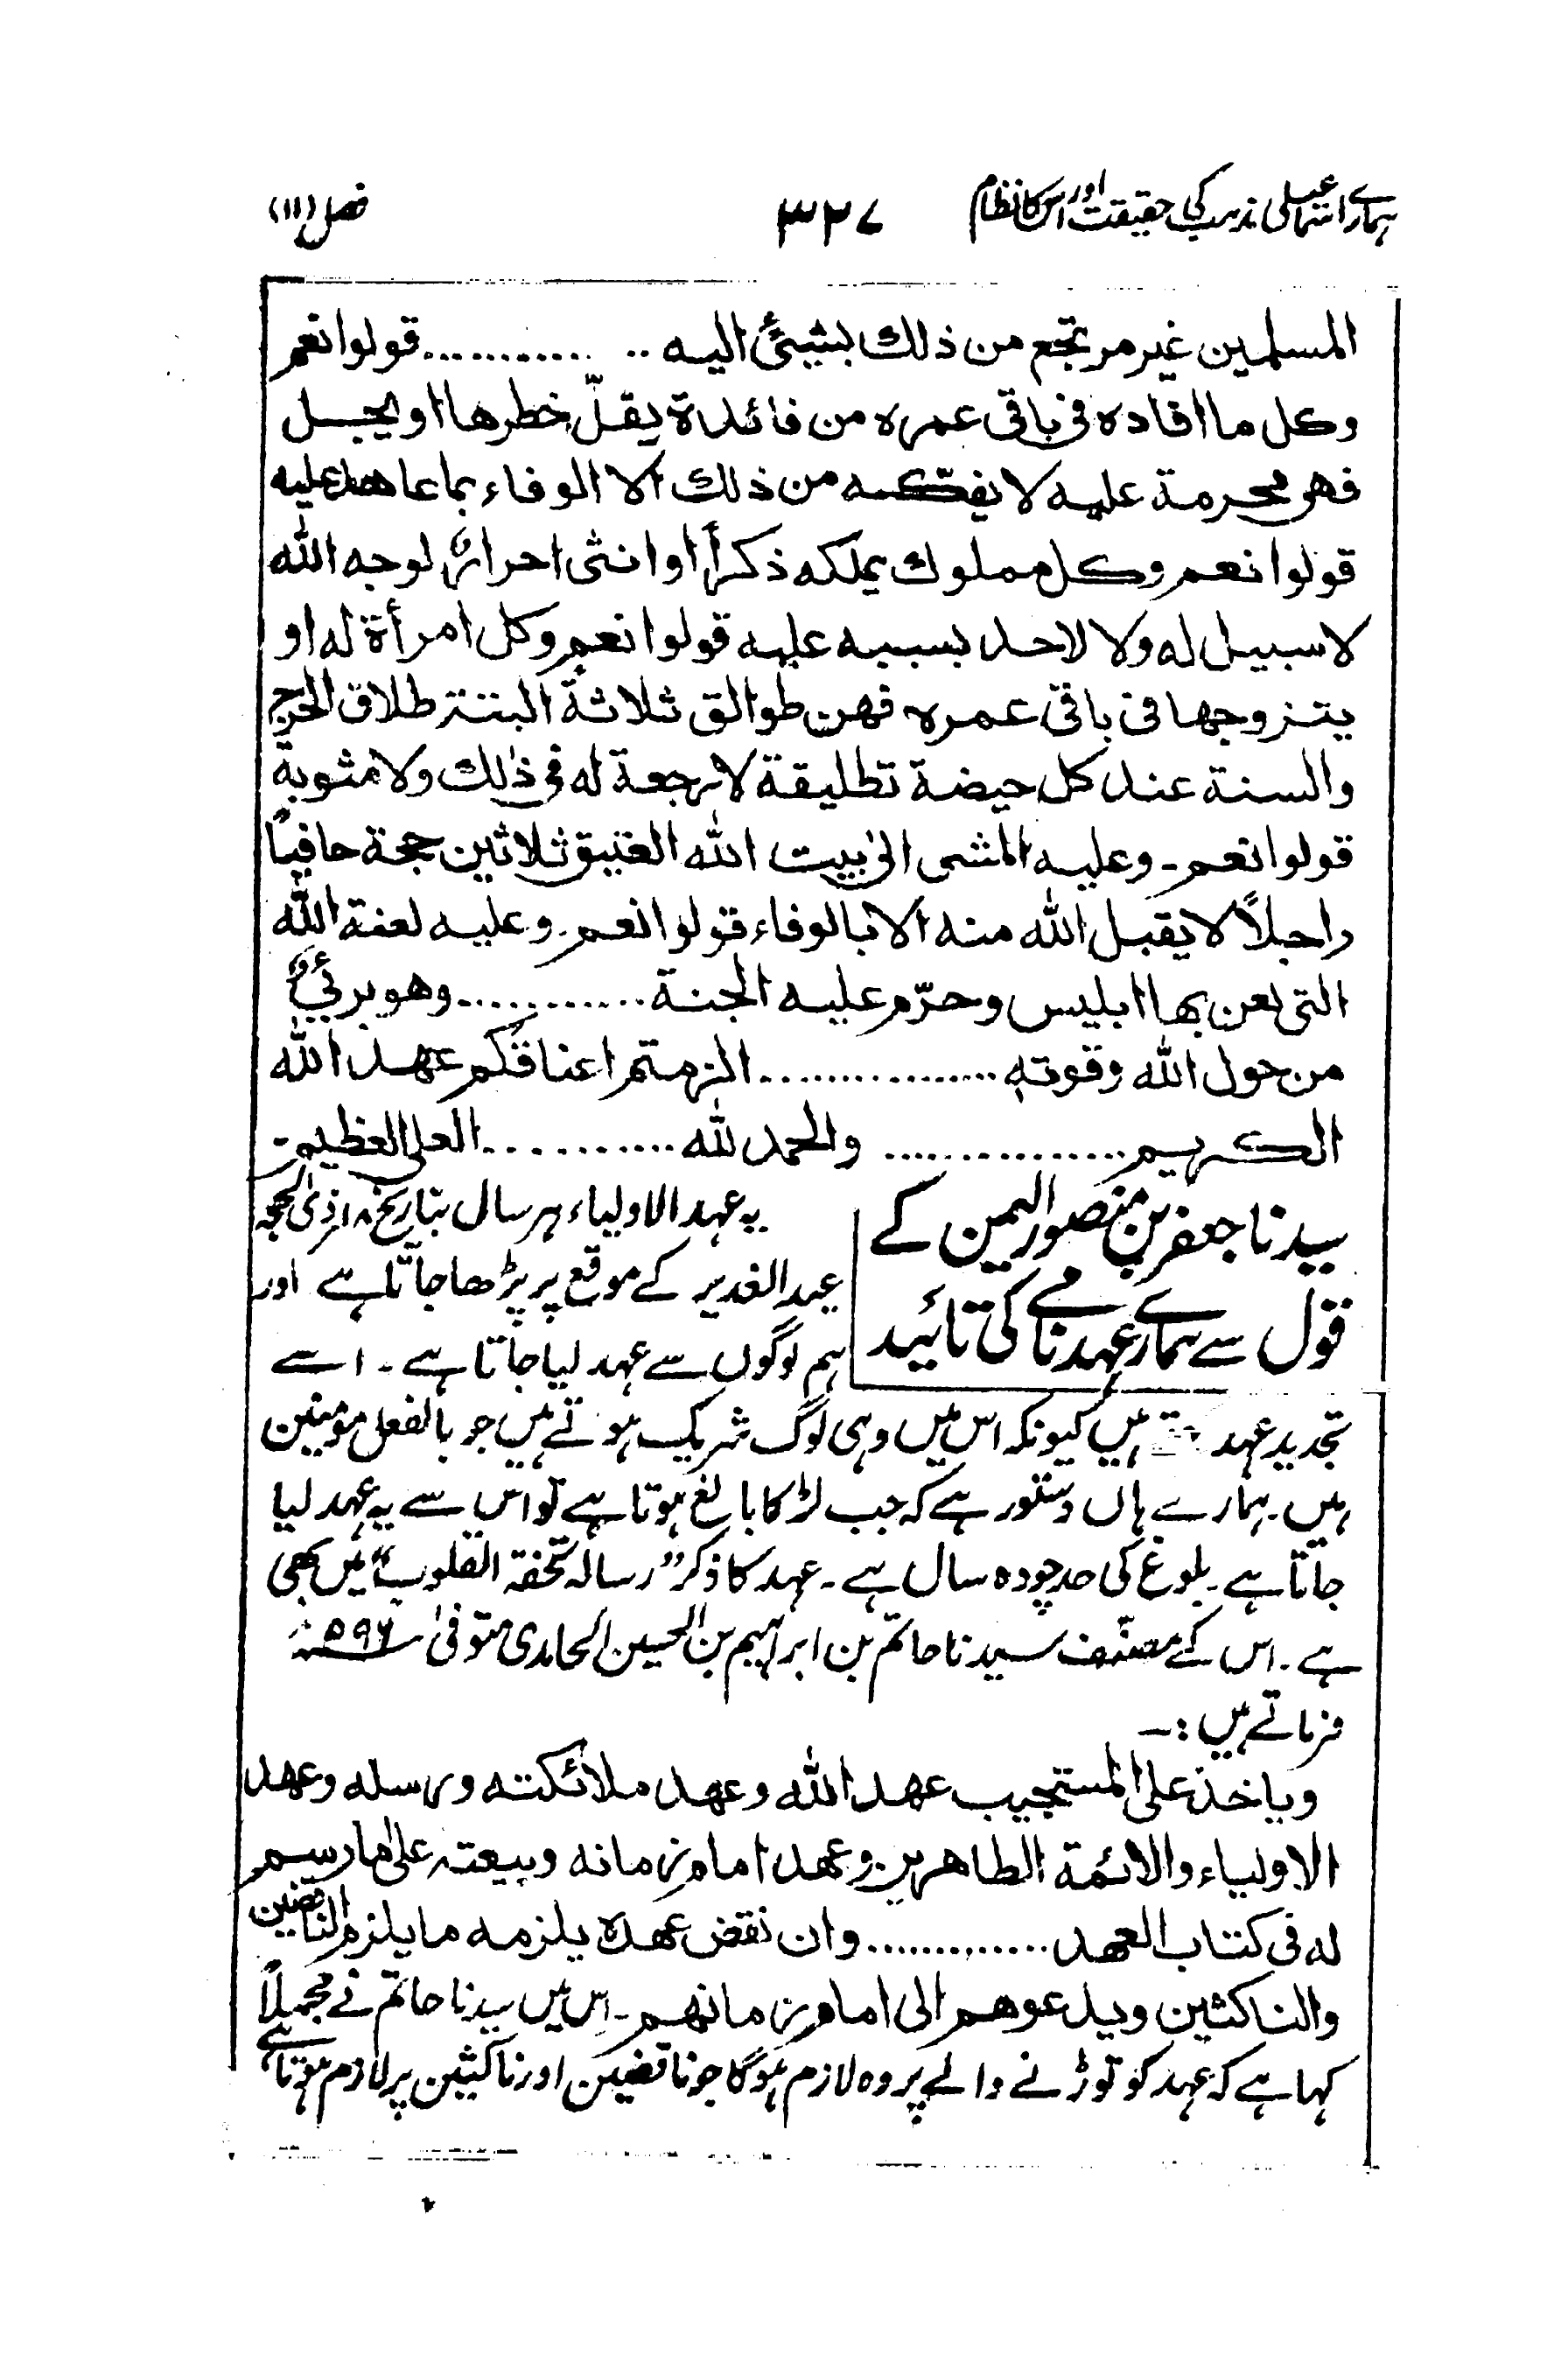 ہمارے اسماعیلی مذہب کی حقیقت اور اس کا نظام ۳۲۷ فصل (۱۱)
المسلمین غیر مرتجع من ذلك بشیئٍ الیہ .. ............قولوا نعم
وکل ما افادہ فی باقی عمرہ من فائدة یقلّ خطرھا او یجل
فھی محرمة علیہ لا یفکہ من ذلك الا الوفاء بما عاھد علیہ
قولوا نعم وکل مملوك یملکہ ذکرًا او انثی احرارٌ لوجہ اللہ
لا سبیل لہ ولا لاحد بسببہ علیہ قولوا نعم وکل امرأة لہ او
یتزوجھا فی باقی عمرہ فھن طوالق ثلاثةً البتة طلاق الحرج
والسنة عند کل حیضة تطلیقة لا رجعة لہ فی ذلك ولا مثوبة
قولوا نعم۔ وعلیہ المشی الیٰ بیت اللہ العتیق ثلاثین حجة حافیًا
راجلاً لا یقبل اللہ منہ الا بالوفاء قولوا نعم۔ وعلیہ لعنة اللہ
التی لعن بھا ابلیس وحرّم علیہ الجنة............وھو برئیٌ
من حول اللہ وقوتہٖ................الزمتم اعناقکم عھد اللہ
الکریم............... والحمد للہ............العلی العظیم۔
سیدنا جعفر بن منصور الیمن کے
قول سے ہمارے عہد نامے کی تائید
یہ عہد الاولیاء ہر سال بتاریخ ۱۸ ذی الحجہ
عید الغدیر کے موقع پر پڑھا جاتا ہے اور
ہم لوگوں سے عہد لیا جاتا ہے۔ اسے
تجدید عہد ہیں کیونکہ اس میں وہی لوگ شریک ہوتے ہیں جو بالفعل مؤمنین
ہیں۔ ہمارے ہاں دستور ہے کہ جب لڑکا بالغ ہوتا ہے تو اس سے یہ عہد لیا
جاتا ہے۔ بلوغ کی حد چودہ سال ہے۔ عہد کا ذکر "رسالہ تحفة القلوب" میں بھی
ہے۔ اس کے مصنّف سیدنا حاتم بن ابراہیم بن الحسین الحامدی متوفیٰ ۵۹۶ھ
فرماتے ہیں :۔
ویاخذ علی المستجیب عھد اللہ وعھد ملائکتہ ورسلہ وعھد
الاولیاء والائمة الطاھرین وعھد امام زمانہ وبیعتہ علیٰ ما رسم
لہ فی کتاب العھد.............وان نقض عھدہ یلزمہ ما یلزم الناقضین
والناکثین ویدعوھم الی امام زمانھم۔ اِس میں سیدنا حاتم نے مجملاً
کہا ہے کہ عہد کو توڑنے والے پر وہ لازم ہوگا جو ناقضین اور ناکثین پر لازم ہوتا ہے